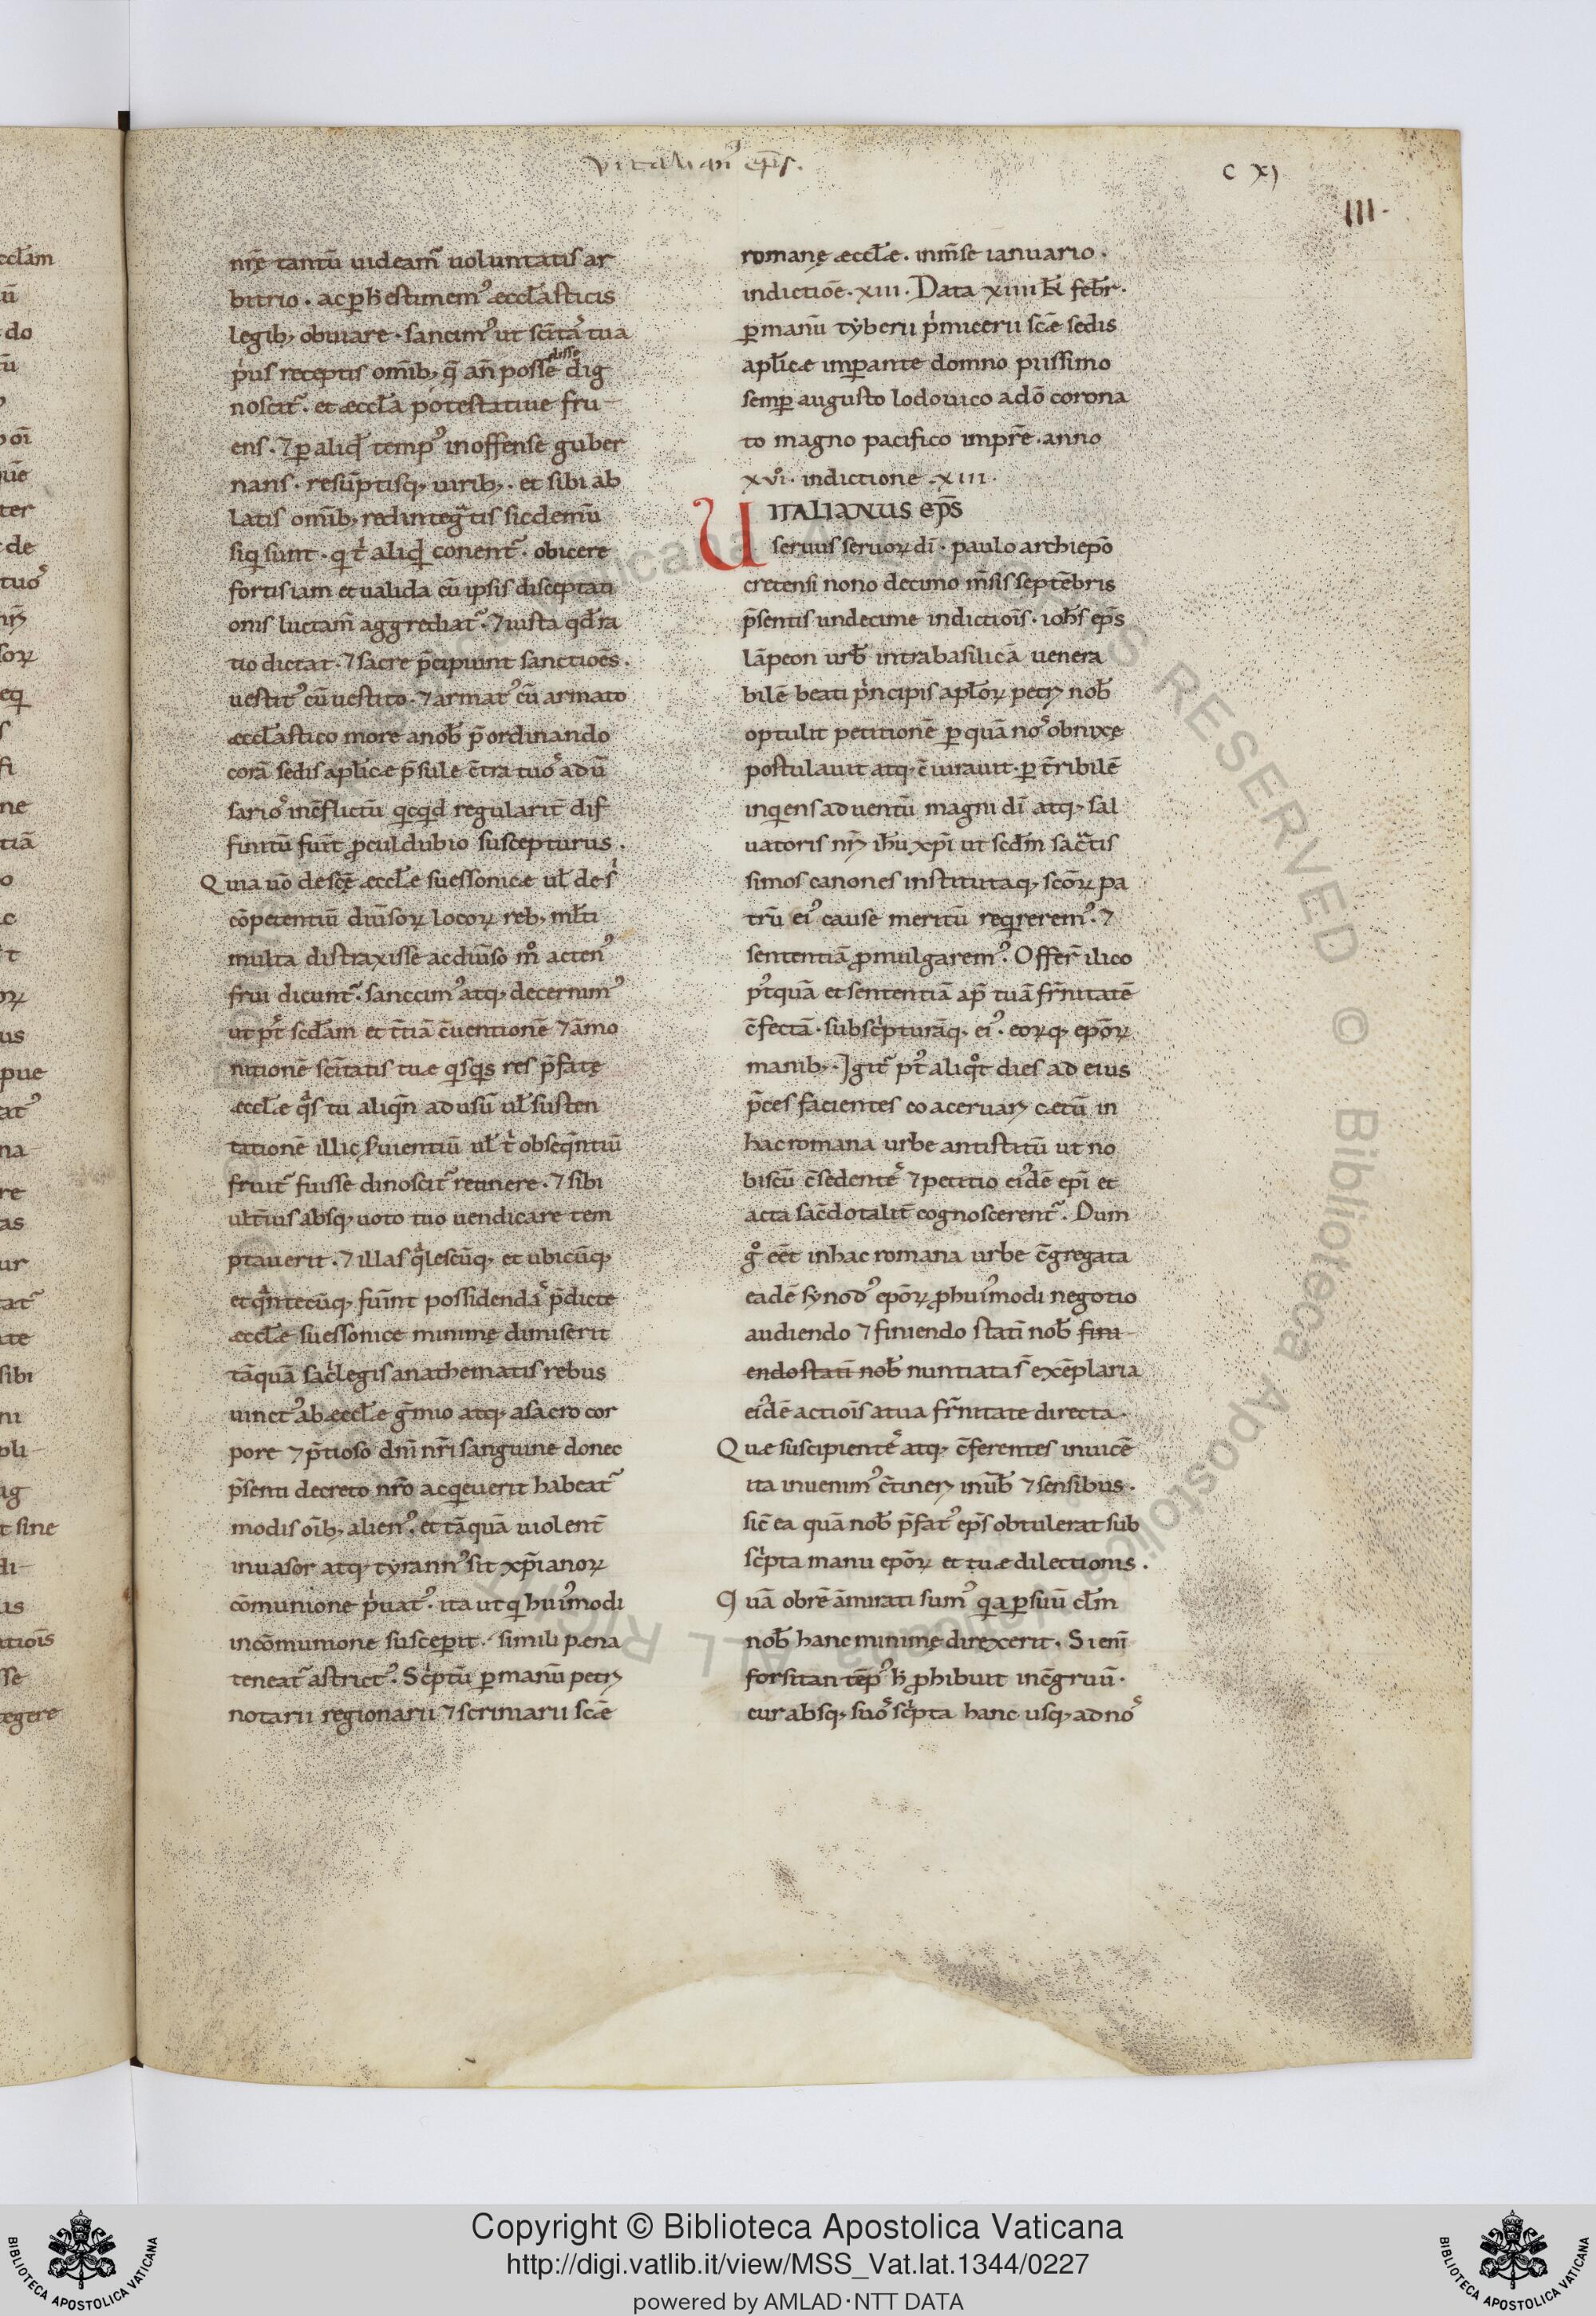 Vitalian᾽ ep̄s.
C XJ
III.
nr̄ę tantū uideam᷑ uoluntatis ar
bitrio. ac p̱ h̄ estimem᾽ æccl̄asticis
legib; obuiare. sancim᾽ ut scītas tua
pͥus receptis omīb; q̄ an̄ posse dig
noscit᷑. et æccl̄a potestatiue fru-
ens. ⁊ p̱ aliqđ temp᾽ inoffense guber
nans. resūptisq; uirib;. et sibi ab
latis omīb; redintegͣtis sic demū
siqͥ sunt. qͥ t̄ aliqđ conent᷑. obicere
fortis iam et ualida cū ipsis disceptati
onis luctam̄ aggrediat᷑. ⁊ iusta qđ ra
tio dictat. ⁊ sacre p̄cipiunt sanctiōes.
uestit᾽ cū uestito. ⁊ armat᾽ cū armato
æccl̄astico more a nob̄ p̄ordinando
corā sedis apl̄icæ p̄sule c̄tra tuos̉ adū
sarios̉ in c̄flictū qͥcqͥd regularit̄ dif
finitū fuīt p̱culdubio suscepturus.
Quia uō de scę̄ æccl̄æ suessonicæ ul̄ de s
cōpetentiū diūsoꝝ locoꝝ reb; ml̄ti
multa distraxisse ac diūso mͦ acten᾽
frui dicunt᷑. sanccim᾽ atq; decernim᾽
ut pꝰt scd̄am et t̄tiā c̄uentionē ⁊ āmo
nitionē scītatis tuæ qͥsqͥs res p̄fatę
æccl̄æ qͣs tu aliqn̄ ad usū ul̄ susten
tationē illic ̄suientiū ul̄ t̄ obseqn̄tiū
fruit᷑ fuisse dinoscit᷑ retinere. ⁊ sibi
ult̄ius absq; uoto tuo uendicare tem
ptauerit. ⁊ illas qͣlescūq; et ubicūq;
et qͣntecūq; fuīnt possidendas̉ p̄dicte
æccl̄æ suessonice minimę dimiserit
tāquā sacͥlegis anathematis rebus
uinct᾽ ab æccl̄æ ḡmio atq; a sacro cor
pore ⁊ p̄tioso dnī nr̄i sanguine donec
p̄senti decreto nr̄o acqͥeuerit habeat᷑
modis oīb; alien᾽. et tāquā uiolent̄
inuasor atq; tyrann᾽ sit xp̄ianoꝝ
cōmunione pͥuat᾽. ita ut qͥ hui᾽modi
in cōmunione suscep̱it. simili pæna
teneat᷑ astrict᾽. Scͥptū p̱ manū petrꝭ
notarii regionarii ⁊ scriniarii scǣ
romanę æccl̄æ. in m̄se ianuario.
indictiōe. xiii. Data xiiii kl̄ febr̄.
p̱ manū tyberii pͥmicerii scǣ sedis
apl̄icæ imp̱ante domno piissimo
semp̱ augusto lodouico a dō corona
to magno pacifico imp̱rē. anno
xvͥ. indictione xiii.
UITALIANUS EP̄S
seruus seruoꝝ dī. paulo archiep̄o
cretensi nono decimo m̄sis septēbris
p̄sentis undecime indictioīs. ioh̄s ep̄s
lāpeon urb̄ intra basilicā uenera
bilē beati pͥncipis apl̄oꝝ petrꝭ nob̄
optulit petitionē p̱ quā nos̉ obnixę
postulauit atq; c̄iurauit. p̱ t̄ribilē
inqͥens aduentū magni dī atq; sal
uatoris nr̄ꝭ ih̄u xp̄i ut scd̄m sacͣtis
simos canones institutaq; scōꝝ pa
trū ei᾽ cause meritū reqͥrerem᾽. ⁊
sententiā p̱mulgarem᾽. Offer̄ ilico
pꝰtquā et sententiā ap̄ tuā fr̄nitatē
c̄fectā. subscͥpturāq; ei᾽. eoꝝq; ep̄oꝝ
manib;. Igit᷑ pꝰt aliqͦt dies ad eius
p̄ces facientes coaceruarꝭ cætū in
hac romana urbe antistitū ut no
biscū c̄sedentes̉ ⁊ petitio ei᾽dē ep̄i et
acta sac̄dotalit̄ cognoscerent᷑. Dum
gͦ eēt in hac romana urbe c̄gregata
eadē synod᾽ ep̄oꝝ p̱ hui᾽modi negotio
audiendo ⁊ finiendo statī nob̄ fini-
endo statī nob̄ nuntiata s̄ exēplaria
ei᾽dē actioīs a tua fr̄nitate directa.
Quæ suscipientes̉ atq; c̄ferentes inuicē
ita inuenim᾽ c̄tinerꝭ in ūb̄ ⁊ sensibus.
sic̄ ea quā nob̄ p̄fat᾽ ep̄s obtulerat sub
scͥpta manu ep̄oꝝ et tuæ dilectionis.
Quā ob rē āmirati sum᾽ qͥa p̱ suū cl̄m
nob̄ hanc minimę direxerit. Si enī
forsitan tēp᾽ h̄ p̱hibuit incēgruū.
cur absq; suos̉ scͥpta hanc usq; ad nos̉
Copyright © Biblioteca Apostolica Vaticana
http://digi.vatlib.it/view/MSS_Vat.lat.1344/0227
powered by AMLAD·NTT DATA